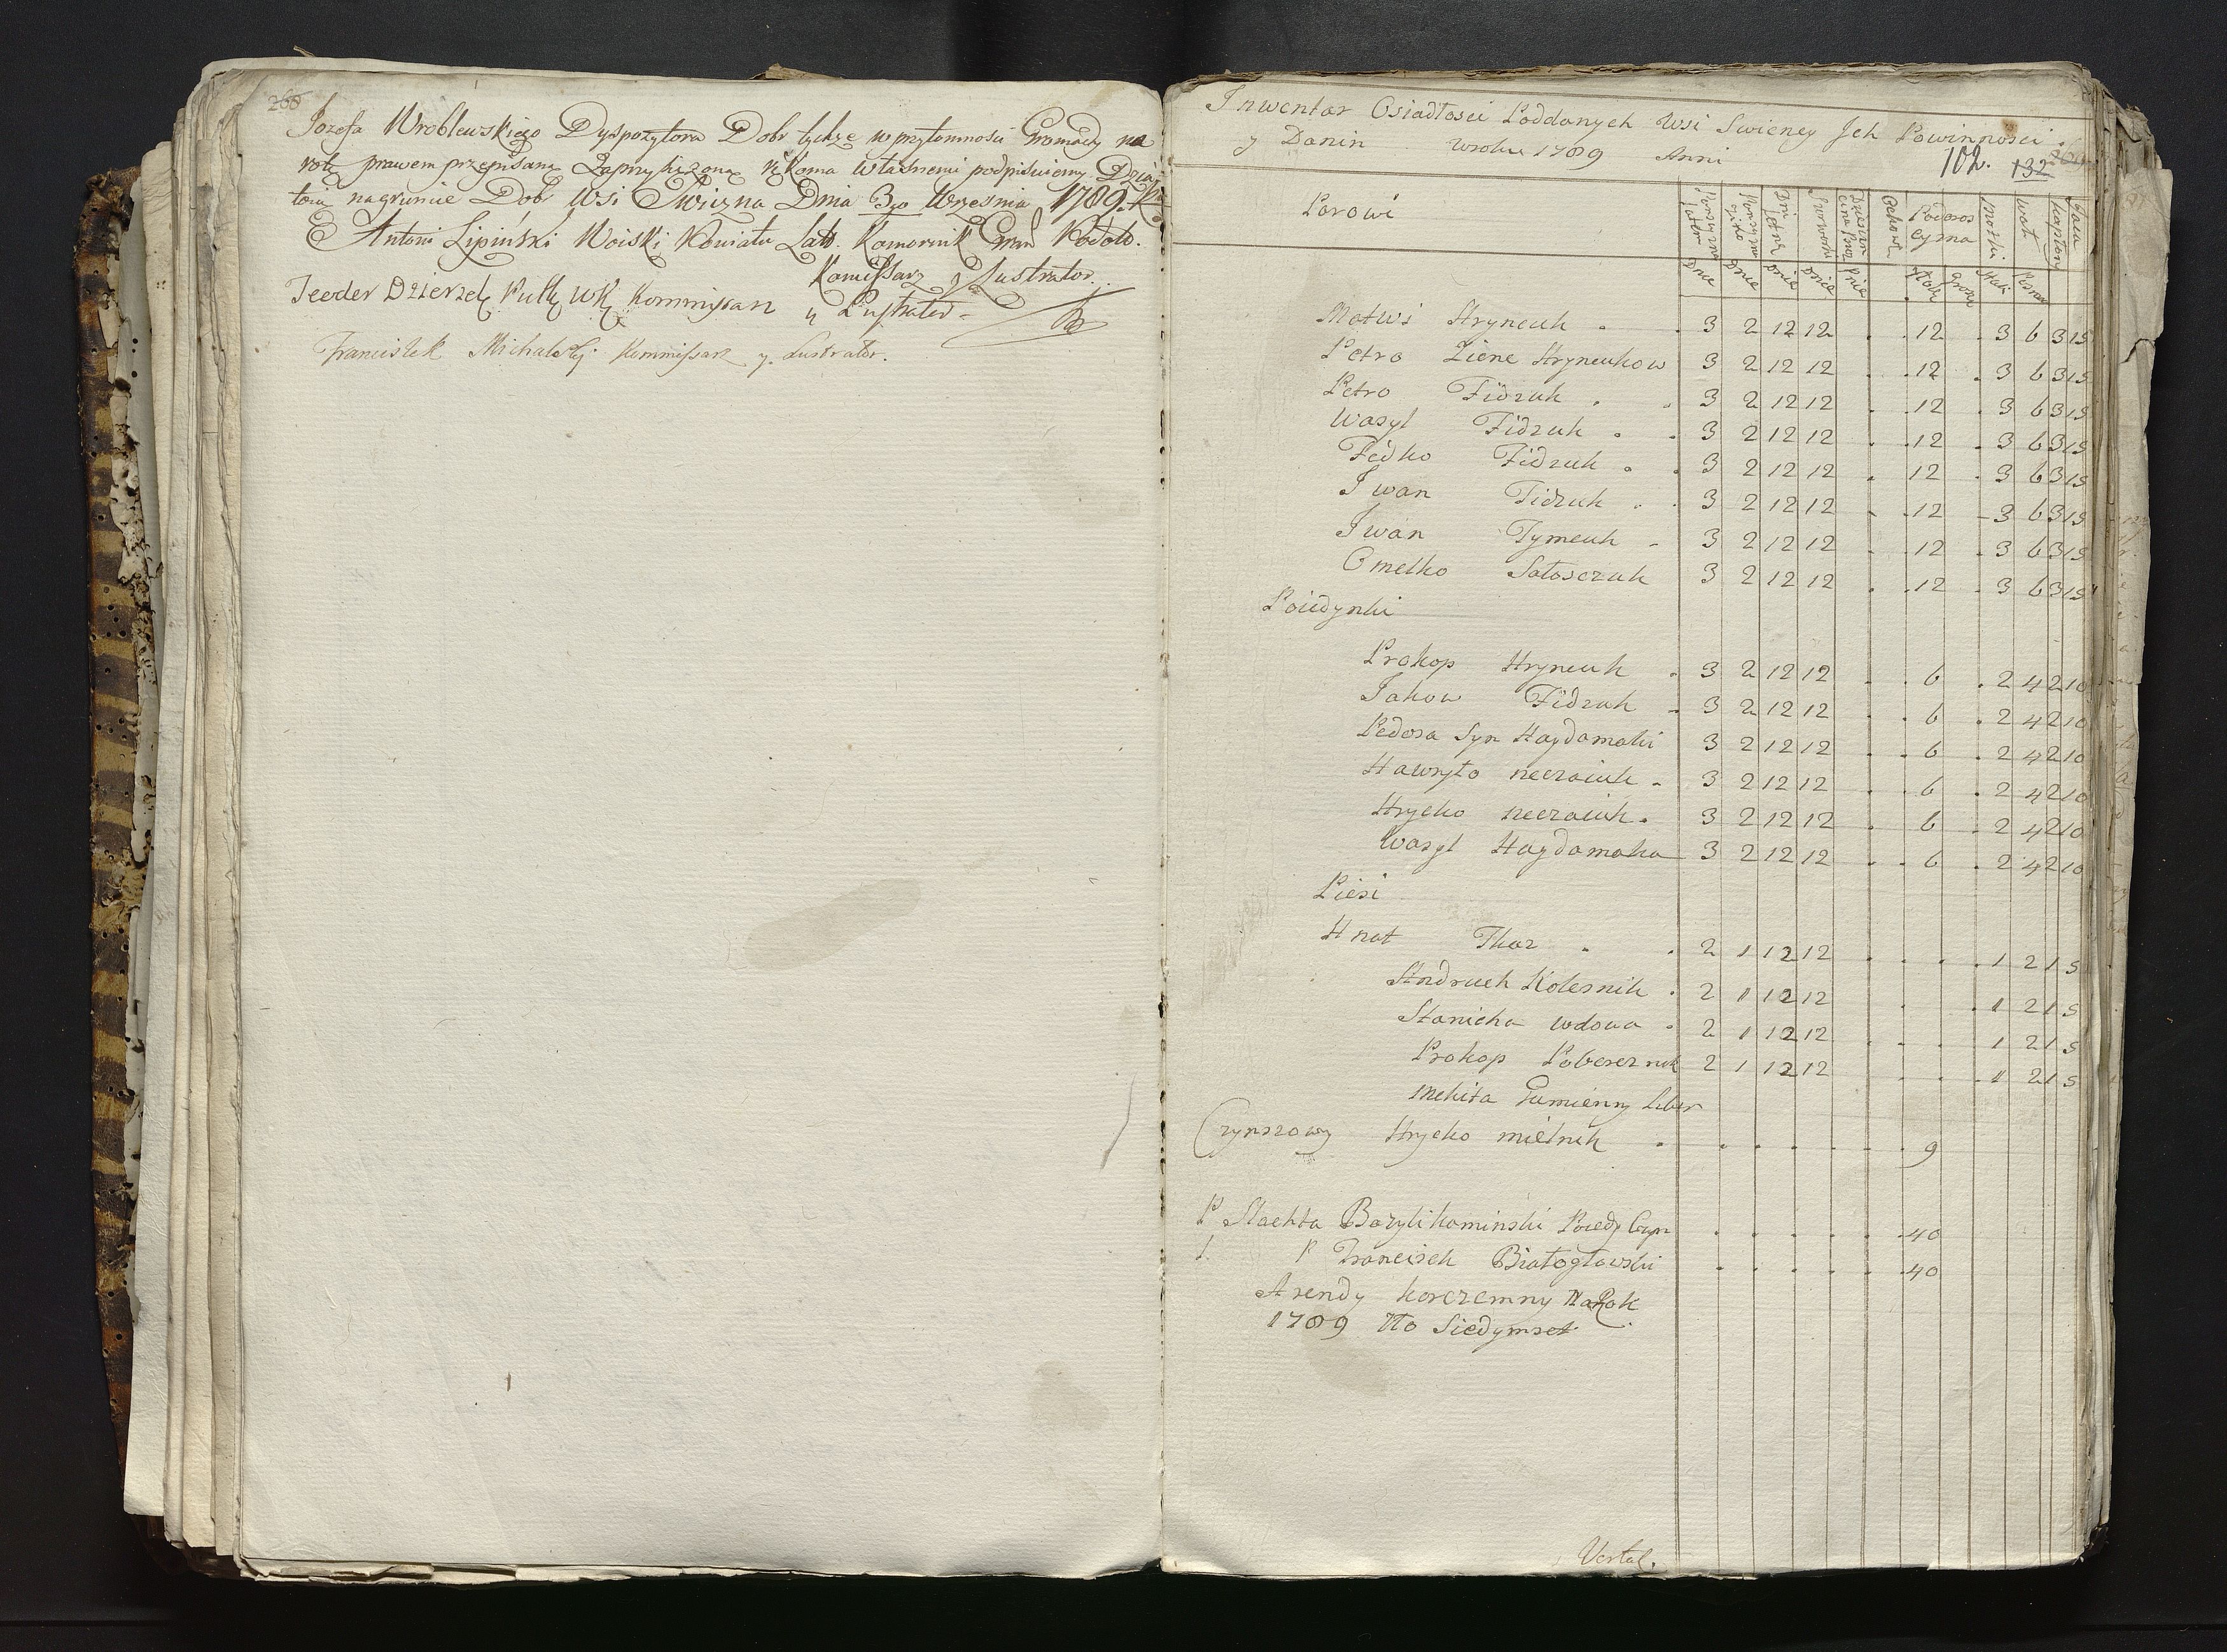 260
Jozefa Wroblewskiego Dyspozytora Dobr tychże w przytomnosci Gromady na
rotę prawem przepisaną Zaprzysiężoną rękoma własnemi podpisuiemy Dzia
łoiu na gruncie Dobr Wsi Swiczna Dnia 3go Wrzesnia 1789. R.
Antoni Lipiński Woiski Powiatu Lat. Komornik Gran Podolo.
Komissarz y Lustrator.
Teodor Dzierzek Pułk WK Kommissarz y Lustrator
Franciszek Michalski Kommissarz y Lustrator.
Inwentarz Osiadłosci Poddanych Wsi Swiczney Jch Powinnosci
y Danin w roku 1789 Anni
102. 132
Parowi
Matwi Hryncuk . . 3 2 12 12 . . 12 . 3 6 3 15
Petro Ziene Hryncukow 3 2 12 12 . . 12 . 3 6 3 15
Petro Fidzuk . . 3 2 12 12 . . 12 . 3 6 3 15
Wasyl Fidzuk . . 3 2 12 12 . . 12 . 3 6 3 15
Fedko Fidzuk . . 3 2 12 12 . 12 . 3 6 3 15
Iwan Fidzuk . . 3 2 12 12 . . 12 . 3 6 3 15
Iwan Tymcuk . 3 2 12 12 . 12 . 3 6 3 15
Omelko Sałosczuk 3 2 12 12 . . 12 . 3 6 3 15
Poiedynki
Prokop Hryncuk . 3 2 12 12 . . 6 . 2 4 2 10
Jakow Fidzuk . 3 2 12 12 . . 6 . 2 4 2 10
Fedora Syn Haydamaki 3 2 12 12 . . 6 . 2 4 2 10
Hawryło neczaiuk . 3 2 12 12 . . 6 . 2 4 2 10
Hrycko neczaiuk . 3 2 12 12 . . 6 . 2 4 2 10
Wasyl Haydamaka 3 2 12 12 . . 6 . 2 4 2 10
Piesi
Hnat Tkaz . . 2 1 12 12 . . . . 1 2 1 5
Andruch Kolesnik . 2 1 12 12 . . 1 2 1 5
Stanicha wdowa . 2 1 12 12 . . . 1 2 1 5
Prokop Pobereznik 2 1 12 12 . . . 1 2 1 5
Mekita Gumienny Liber
Czynszowy Hrycko mielnik . . . . . . . 9
P Slachta Bazyli Kaminski Poiedy Czyn . . . . . . 40
P Franciszek Białogłowski . . . . . . 40
Arendy korczemny Na Rok
1789 Tło Siedymset
Vertat.